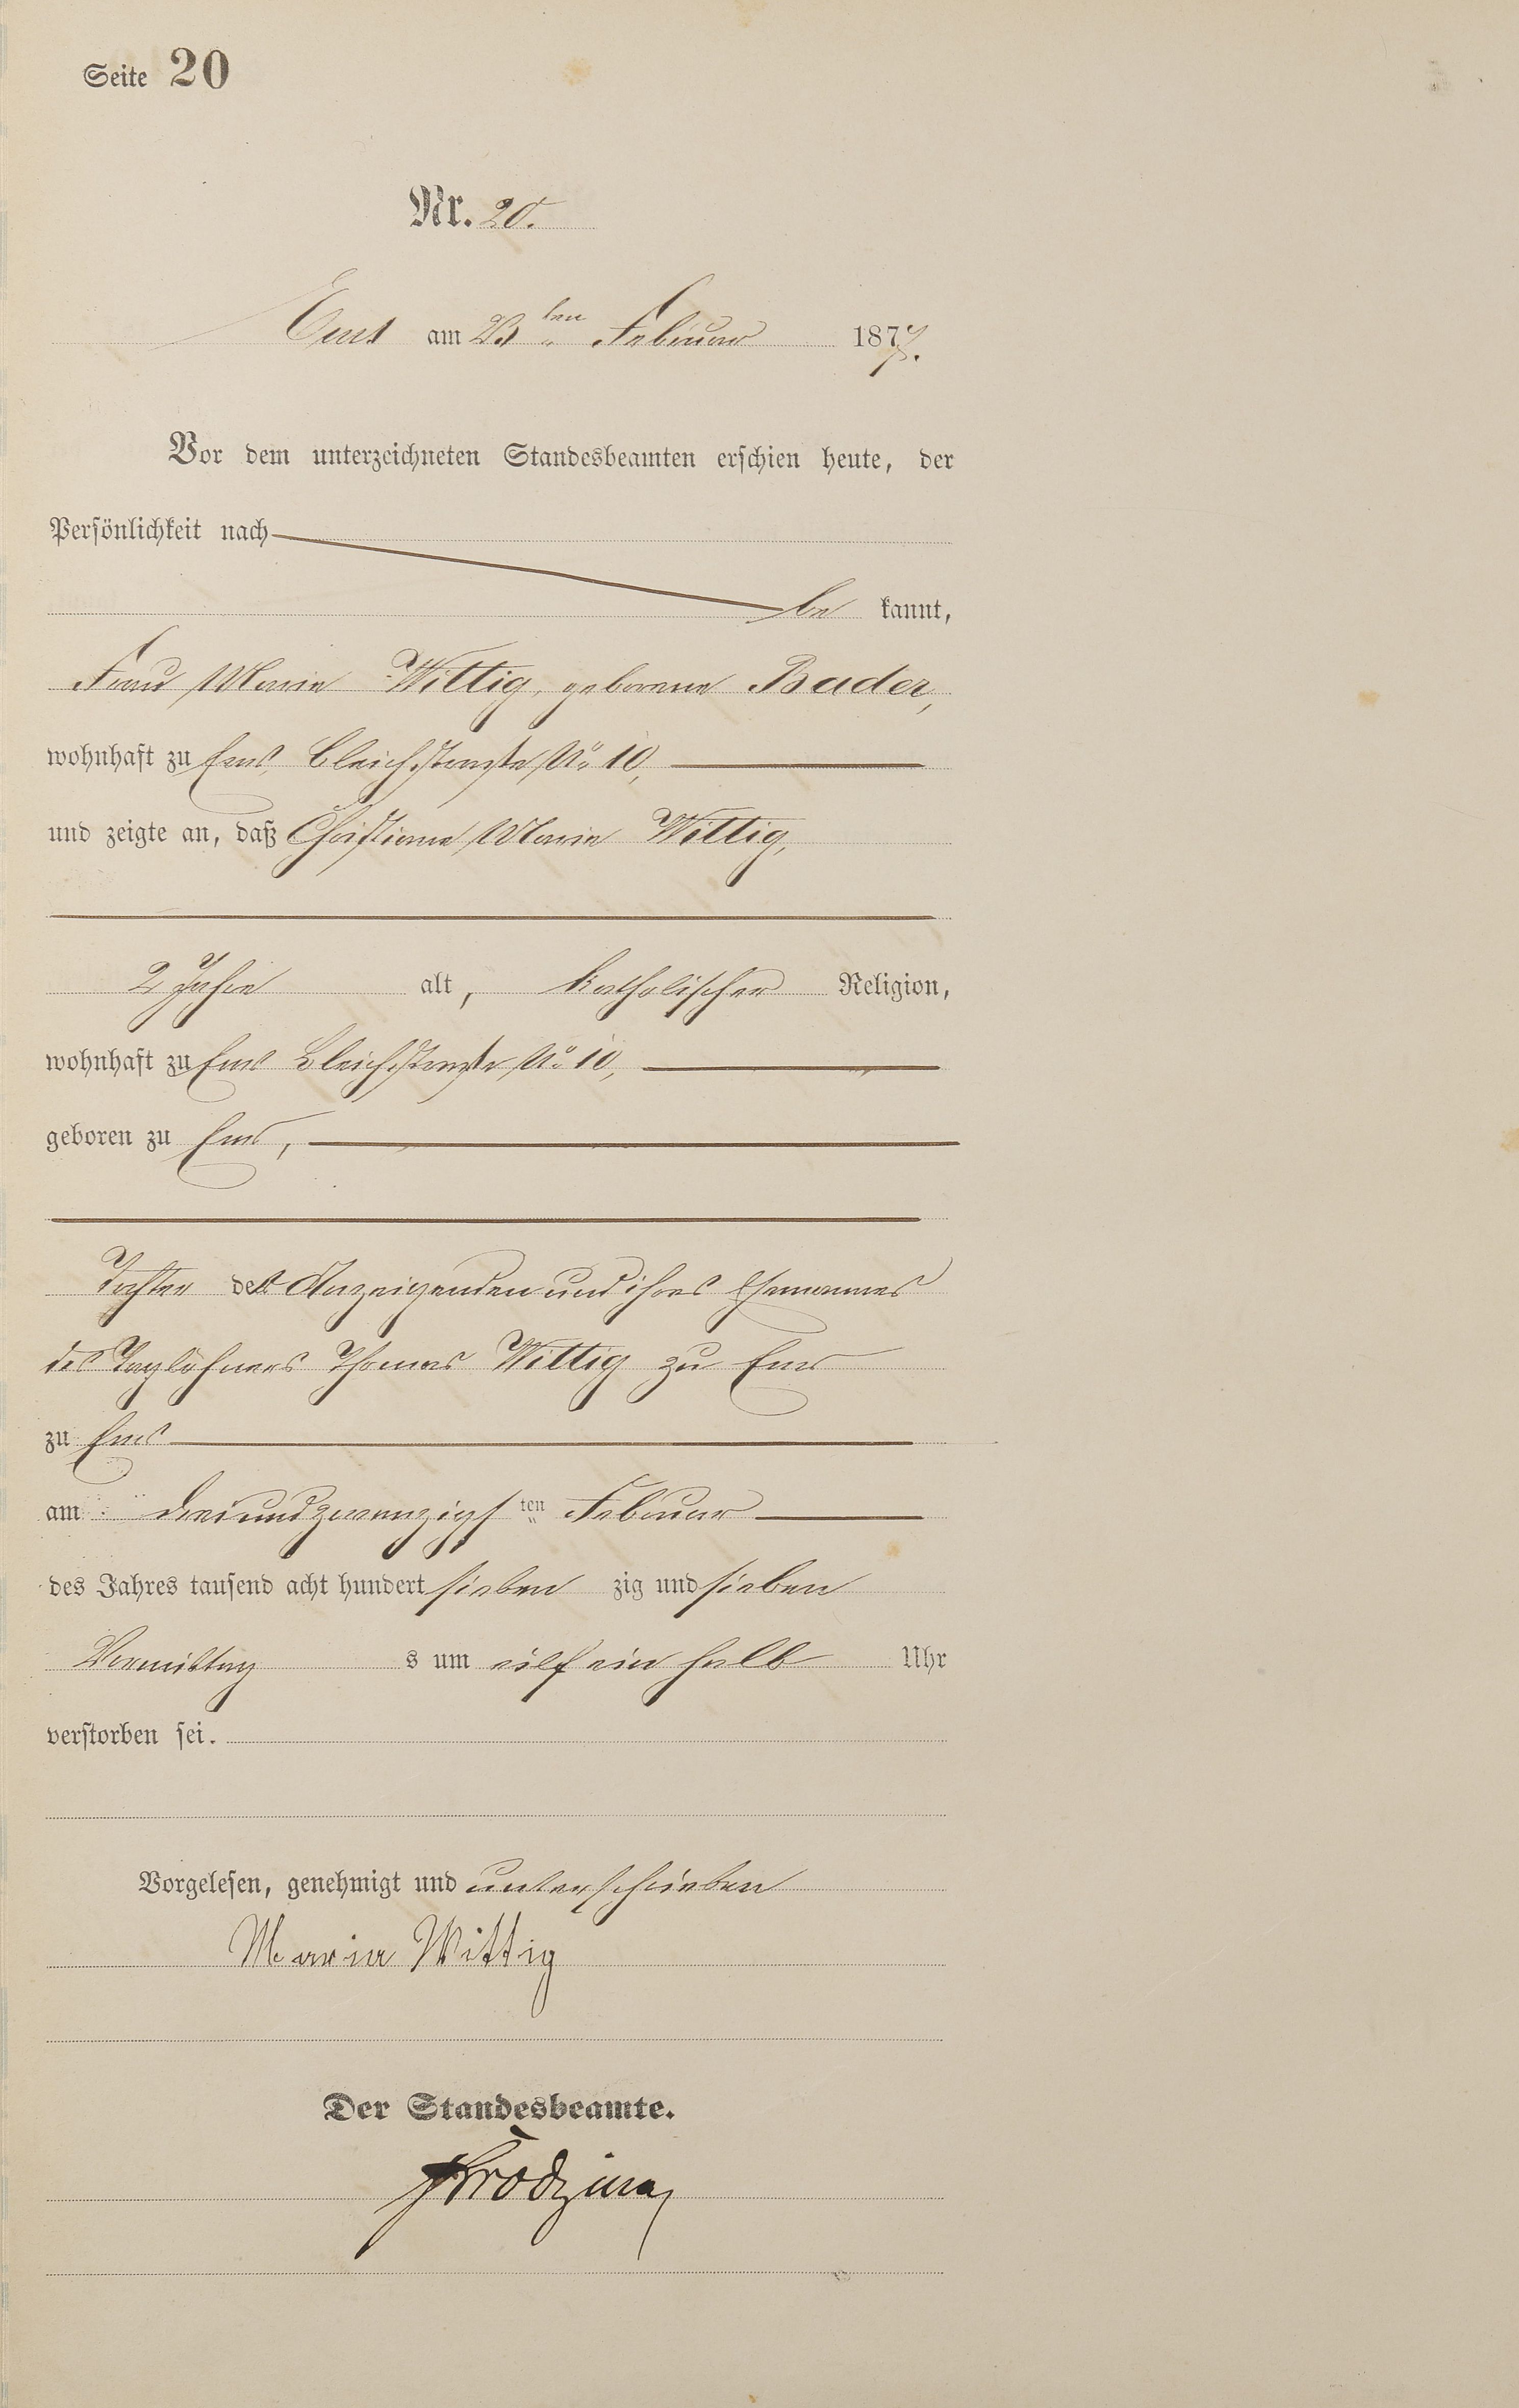 Seite 20
Nr. 20.
Ems am 23ten Februar 1877.
Vor dem unterzeichneten Standesbeamten erschien heute, der
Persönlichkeit nach
be kannt,
Frau Marie Wittig, geborene Bader,
wohnhaft zu Ems, Bleichstraße No 10,
und zeigte an, daß Christiane Marie Wittig,
2 Jahre alt, katholischer Religion,
wohnhaft zu Ems Bleichstraße No 10,
geboren zu Ems,
Tochter der Anzeigenden und ihres Ehemannes
des Taglöhners Thomas Wittig zu Ems
zu Ems
am dreiundzwanzigsten Februar
des Jahres tausend acht hundert sieben zig und sieben
Vormittag s um eilf ein halb Uhr
verstorben sei.
Vorgelesen, genehmigt und unterschrieben
Maria Wittig
Der Standesbeamte.